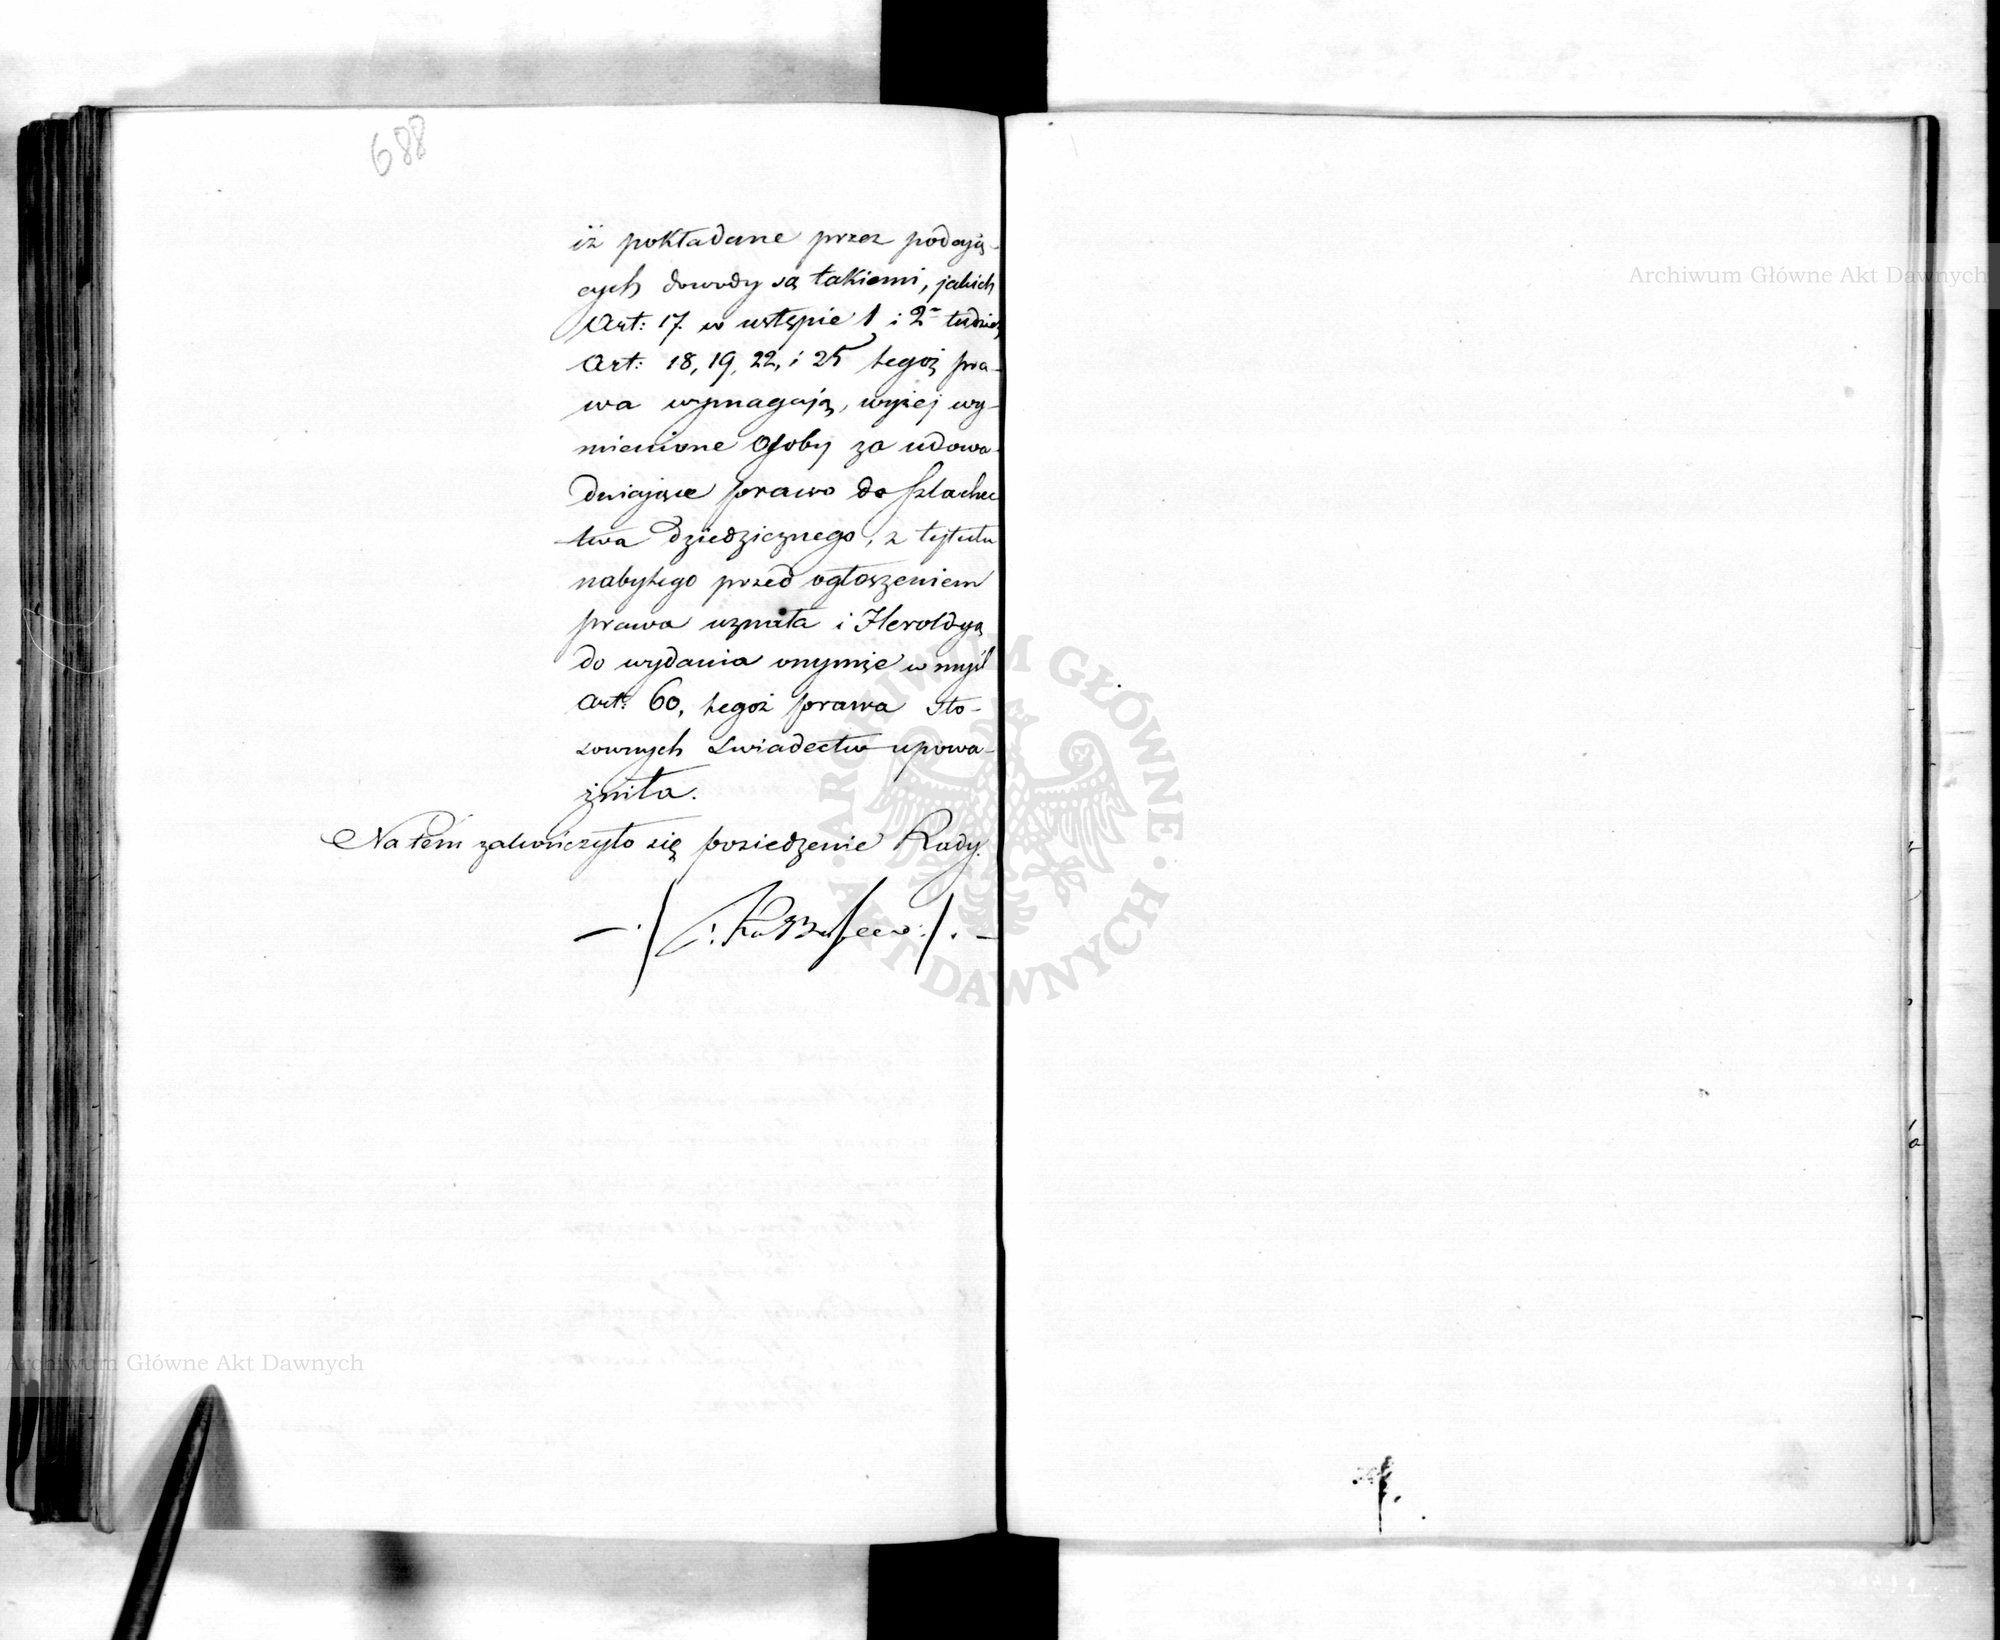 688
iż pokładane przez podają-
cych dowody są takiemi, jakich
Art: 17. w ustępie 1 i 2 tudzież
Art: 18, 19, 22, i 25 tegoż pra-
wa wymagają, wyżej wy-
mienione Osoby za udowa-
dniające prawo do szlachec
twa dziedzicznego, z tytułu
nabytego przed ogłoszeniem
prawa uznała i Heroldyą
do wydania onymże w myśl
Art: 60, tegoż prawa sto-
sownych świadectw upowa-
żniła.
Na tém zakończyło się posiedzenie Rady.
Archiwum Główne Akt Dawnych
Archiwum Główne Akt Dawnych
ARCHIWUM GŁÓWNE AKT DAWNYCH